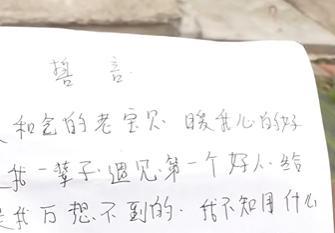 誓言
和全的老宝贝. 暖我心的好
我一辈子.遇见.第一个好人.给
是我万想不到的.我不知用什么